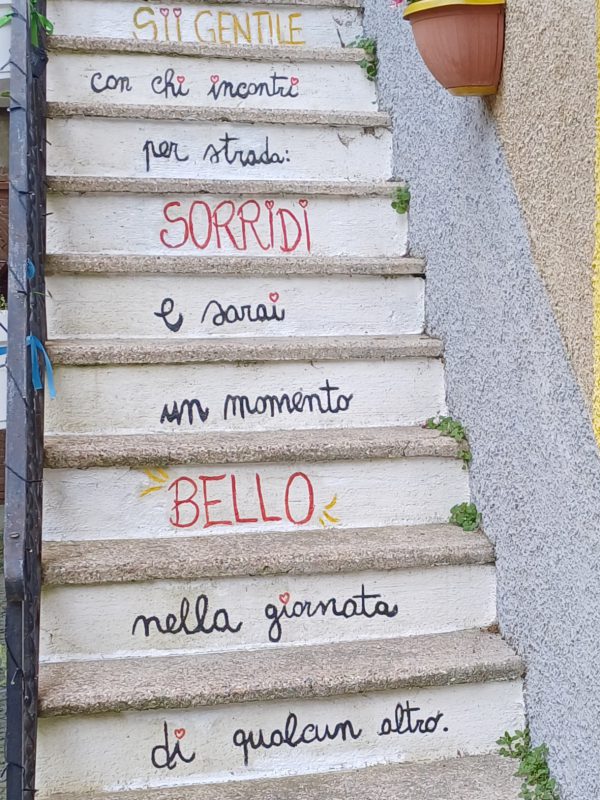 SII GENTILE
con chi incontri
per strada:
SORRiDi
e sarai
un momento
BELLO
nella giornata
di qualcun altro.